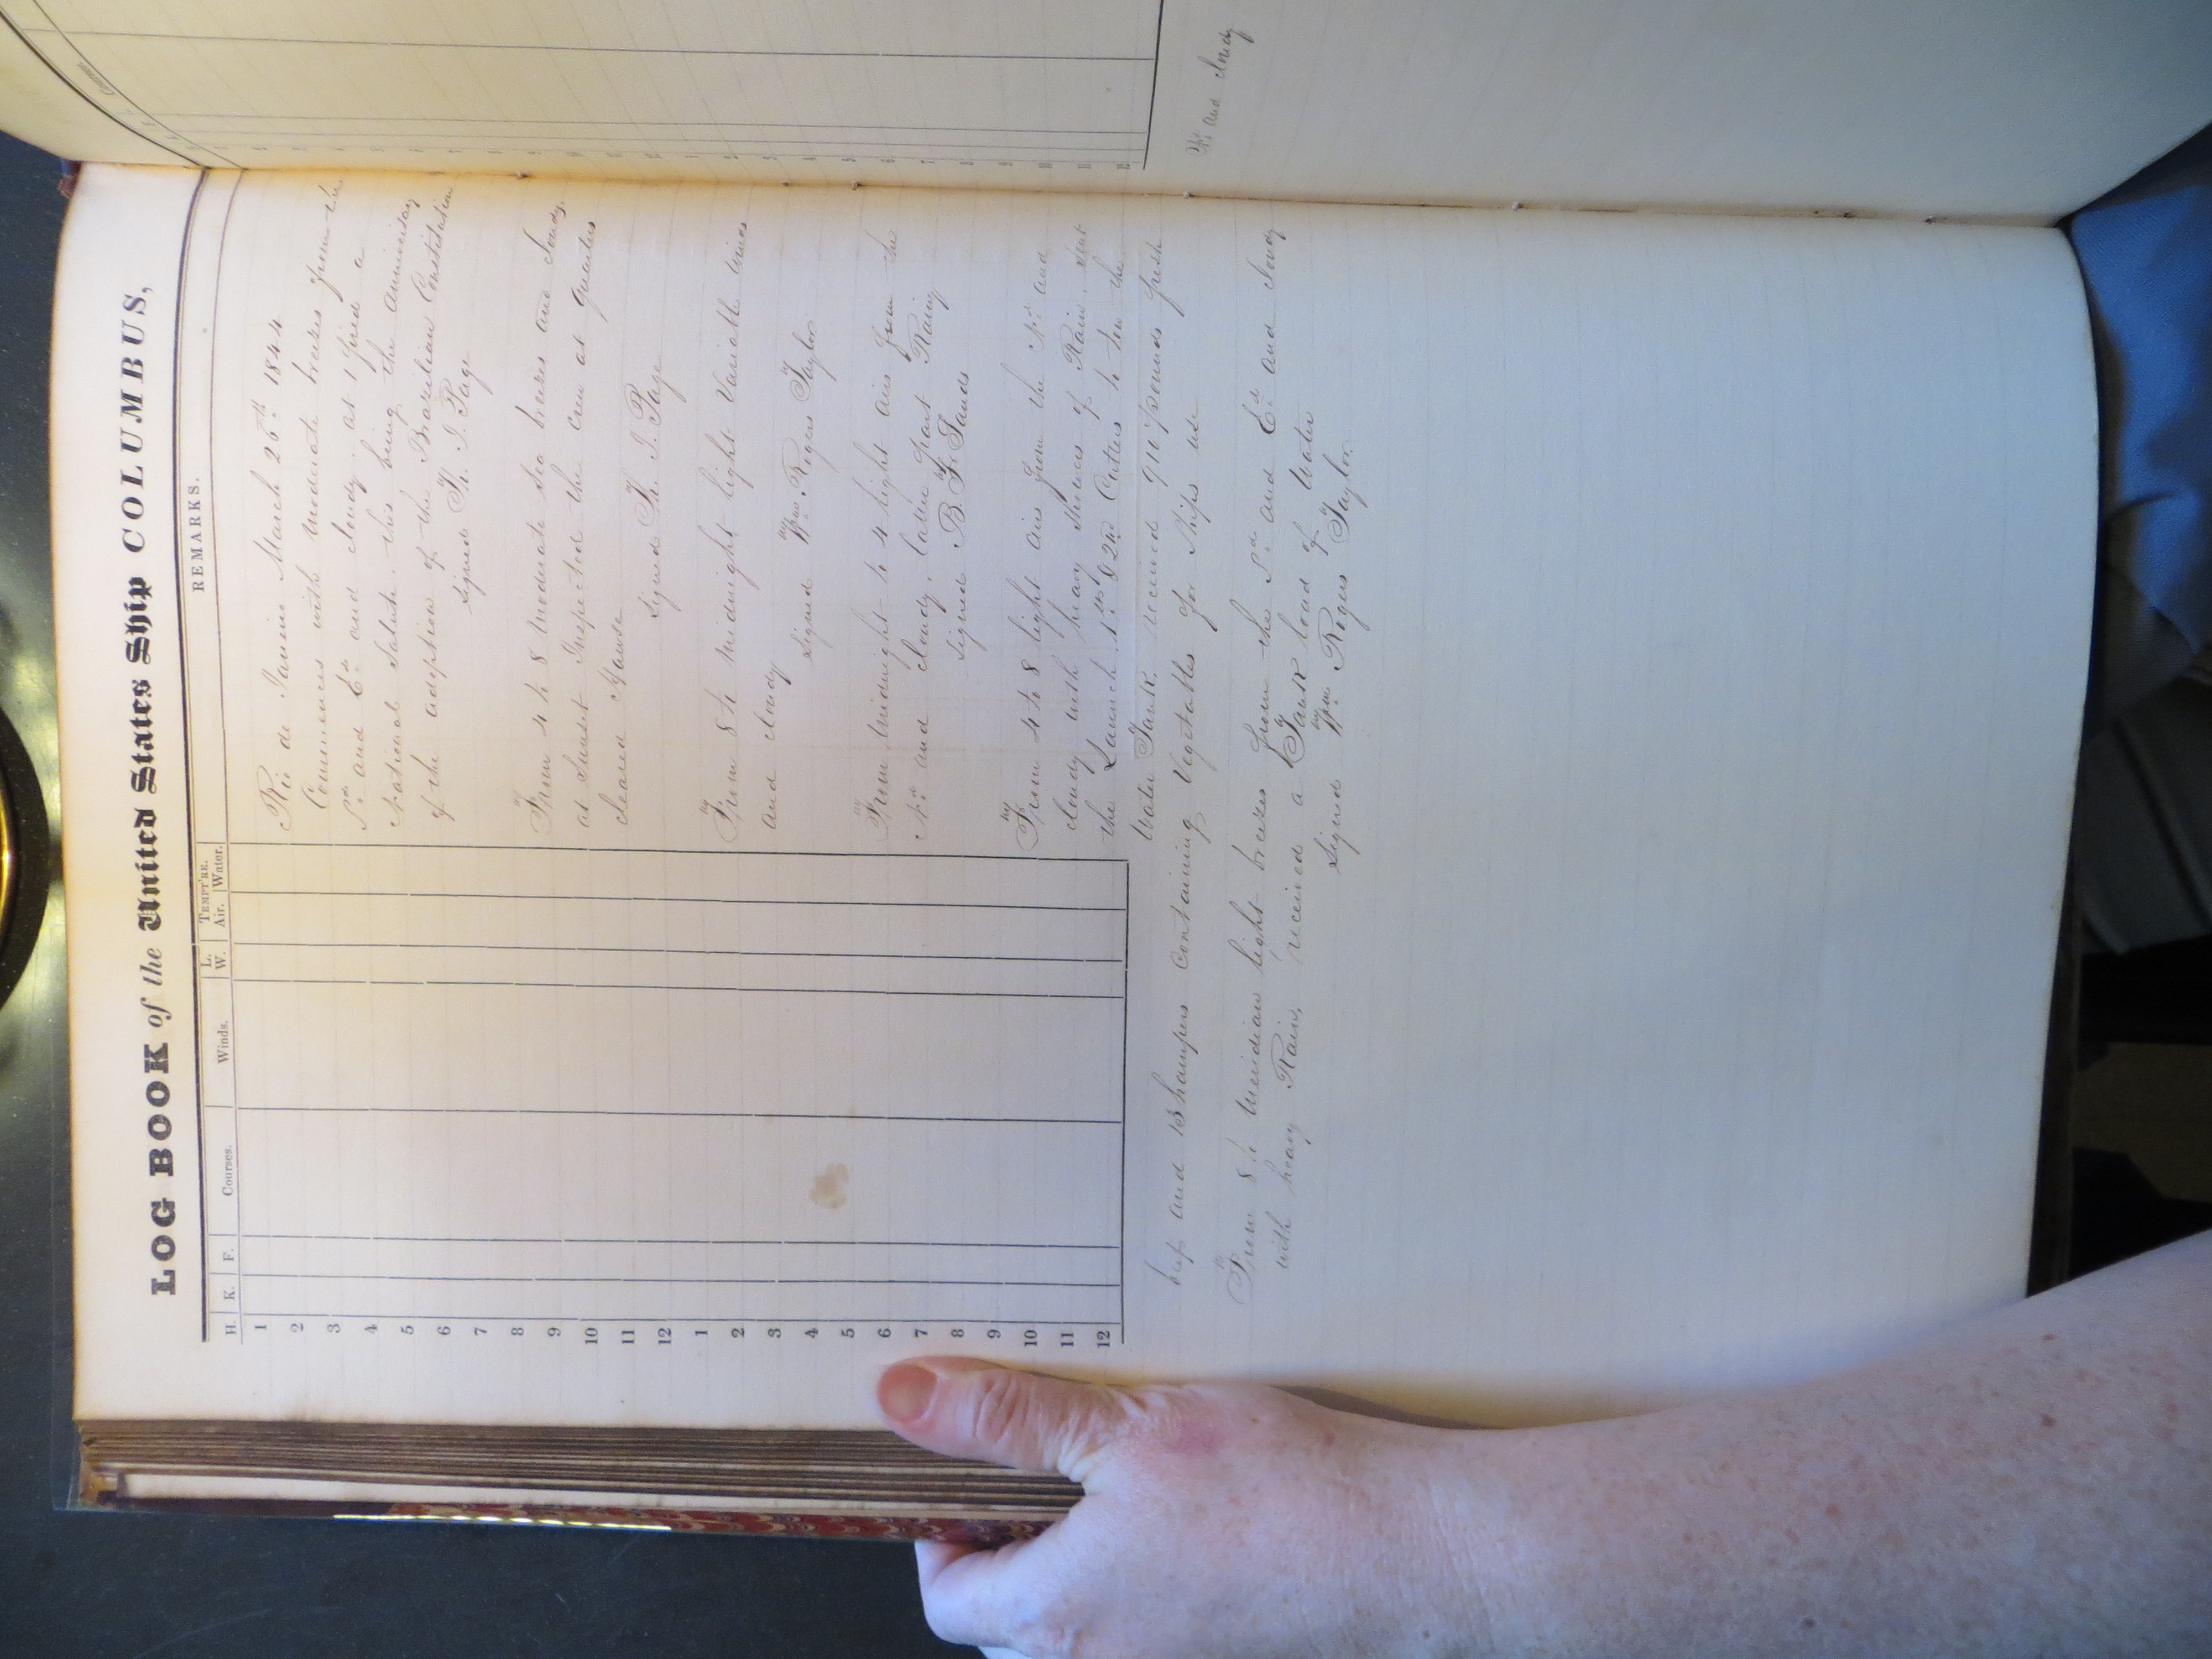 LOG BOOK of the United States Ship COLUMBUS,
H. K. F. Courses. Winds. L. W. TEMPT'RE. Air. Water. REMARKS.
1
2
3
4
5
6
7
8
9
10
11
12
1
2
3
4
5
6
7
8
9
10
11
12
Rio de Janeiro March 26th 1844
Commences with moderate breezes from the
Sd and Ed and cloudy. at 1 fired a
National Salute. this being the anniversay
of the adoption of the Brazilian Constitution
Signed Th. J. Page
From 4 to 8 Moderate sea breezes and cloudy.
at Sunset Inspected the crew at quarters
cleared Hawse
Signed Th. J. Page
From 8 to Midnight light Variable winds
and cloudy
Signed Wm. Rogers Taylor
From Midnight to 4 light airs from the
Nd and cloudy. latter part Rainy
Signed B. F. Sands
From 4 to 8 light airs from the Nd and
cloudy with heavy showers of Rain. sent
the Launch 1st & 2nd Cutters to tow the
Water Tank. received 910 pounds fresh
beef and 13 hampers Containing Vegetables for Ships use
From 8 to Meridian light breezes from the Sd and Ed and cloudy
with heavy Rain, received a Tank load of Water
Signed Wm Rogers Taylor.
Nd and cloudy